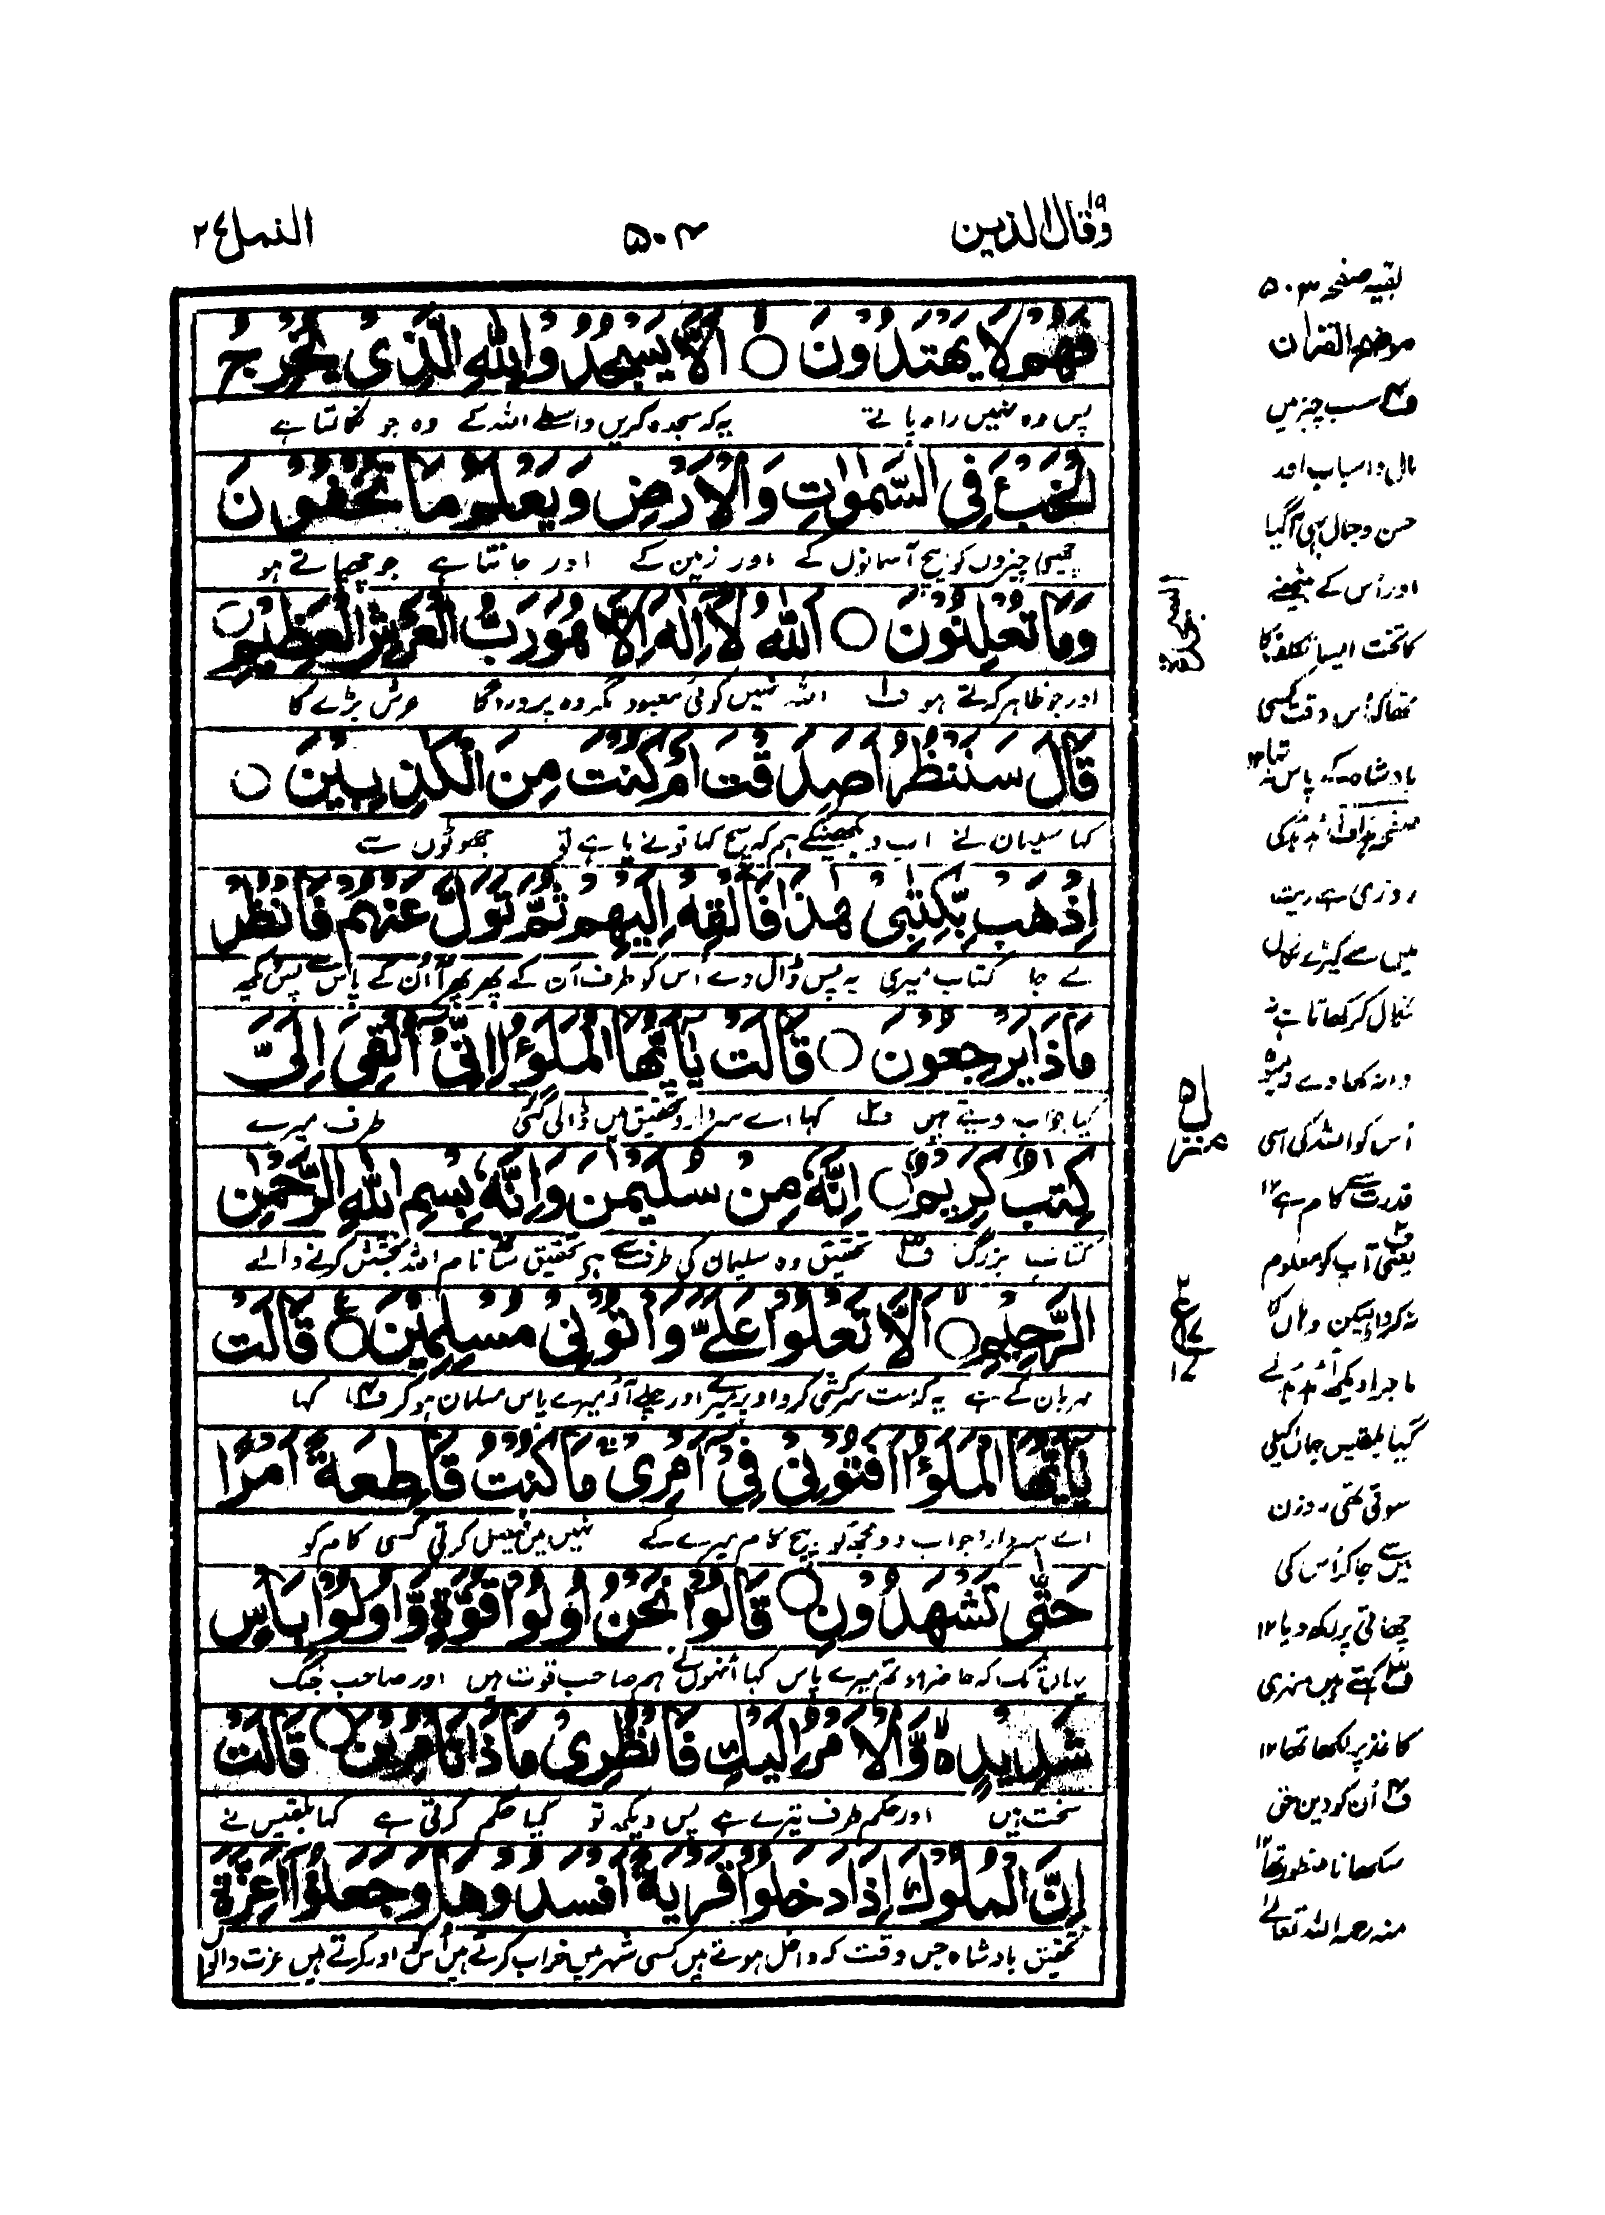 وقال الذین ۱۹
۵۰۴
النمل ۲۷
فَهُمْ لَا يَهْتَدُونَ ○ اَلَّا يَسْجُدُوا لِلّٰهِ الَّذِى يُخْرِجُ
پس وہ نہیں راہ پاتے یہ کہ سجدہ کریں واسطے اللہ کے وہ جو نکالتا ہے
الْخَبْءَ فِى السَّمٰوٰتِ وَالْاَرْضِ وَيَعْلَمُ مَا تُخْفُونَ
چھپی چیزوں کو بیچ آسمانوں کے اور زمین کے اور جانتا ہے جو چھپاتے ہو
وَمَا تُعْلِنُونَ ○ اَللّٰهُ لَا اِلٰهَ اِلَّا هُوَ رَبُّ الْعَرْشِ الْعَظِيمِ ○
اور جو ظاہر کرتے ہو ف۱ اللہ نہیں کوئی معبود مگر وہ پروردگار عرش بڑے کا
قَالَ سَنَنْظُرُ اَصَدَقْتَ اَمْ كُنْتَ مِنَ الْكٰذِبِينَ ○
کہا سلیمان نے اب دیکھینگے ہم کہ سچ کہا تو نے یا ہے تو جھوٹوں سے
اِذْهَبْ بِّكِتٰبِى هٰذَا فَاَلْقِهْ اِلَيْهِمْ ثُمَّ تَوَلَّ عَنْهُمْ فَانْظُرْ
لے جا کتاب میری یہ پس ڈال دے اُس کو طرف اُن کے پھر پھر آ اُن کے پاس سے پس دیکھ
مَاذَا يَرْجِعُونَ ○ قَالَتْ يٰاَيُّهَا الْمَلَؤُا اِنِّى اُلْقِىَ اِلَىَّ
کیا جواب دیتے ہیں ف۲ کہا اے سردارو تحقیق میں ڈالی گئی طرف میرے
كِتٰبٌ كَرِيمٌ ○ اِنَّهٗ مِنْ سُلَيْمٰنَ وَاِنَّهٗ بِسْمِ اللّٰهِ الرَّحْمٰنِ
کتاب بزرگ ف۳ تحقیق وہ سلیمان کی طرف سے ہے اور تحقیق ساتھ نام اللہ بخشش کرنے والے
الرَّحِيمِ ○ اَلَّا تَعْلُوا عَلَىَّ وَاْتُونِى مُسْلِمِينَ ○ قَالَتْ
مہربان کے ہے یہ کہ مت سرکشی کرو اوپر میرے اور چلے آؤ میرے پاس مسلمان ہو کر ف۴ کہا
يٰاَيُّهَا الْمَلَؤُا اَفْتُونِى فِى اَمْرِى مَا كُنْتُ قَاطِعَةً اَمْرًا
اے سردارو جواب دو مجھ کو بیچ کام میرے کے نہیں میں فیصل کرتی کسی کام کو
حَتّٰى تَشْهَدُونِ ○ قَالُوا نَحْنُ اُولُوا قُوَّةٍ وَّاُولُوا بَاْسٍ
یہاں تک کہ حاضر ہو تم میرے پاس کہا اُنہوں نے ہم صاحب قوت ہیں اور صاحب جنگ
شَدِيدٍ وَّالْاَمْرُ اِلَيْكِ فَانْظُرِى مَاذَا تَاْمُرِينَ ○ قَالَتْ
سخت ہیں اور حکم طرف تیرے ہے پس دیکھ تو کیا حکم کرتی ہے کہا بلقیس نے
اِنَّ الْمُلُوكَ اِذَا دَخَلُوا قَرْيَةً اَفْسَدُوهَا وَجَعَلُوا اَعِزَّةَ
تحقیق بادشاہ جس وقت کہ داخل ہوتے ہیں کسی شہر میں خراب کرتے ہیں اُس کو اور کرتے ہیں عزت والوں
بقیہ صفحہ ۵۰۳
موضح القرآن
ف۴ سب چیز میں
مال و اسباب اور
حسن و جمال بھی آگیا
اور اُس کے بیٹھنے
کا تخت ایسا تکلف کا
تھا کہ اُس وقت کسی
بادشاہ کے پاس نہ تھا ۱۲
صفحہ ہذا ف۱ ہُدہُد کی
روزی ہے ریت
میں سے کیڑے نکال
نکال کر کھاتا ہے نہ
دانہ کھاوے نہ میوہ
اُس کو اللہ کی اسی
قدرت سے کام ہے ۱۲
ف۲ یعنی آپ کو معلوم
نہ کروا لیکن وہاں کا
ماجرا دیکھ آ ہُدہُد لے
گیا بلقیس جہاں اکیلی
سوتی تھی روزن
میں سے جا کر اُس کی
چھاتی پر رکھ دیا ۱۲
ف۳ کہتے ہیں سنہری
کاغذ پر لکھا تھا ۱۲
ف۴ اُن کو دین حق
سکھانا منظور تھا ۱۲
منہ رحمہ اللہ تعالےٰ
السجدة
منزل ۵
ع
۱۷